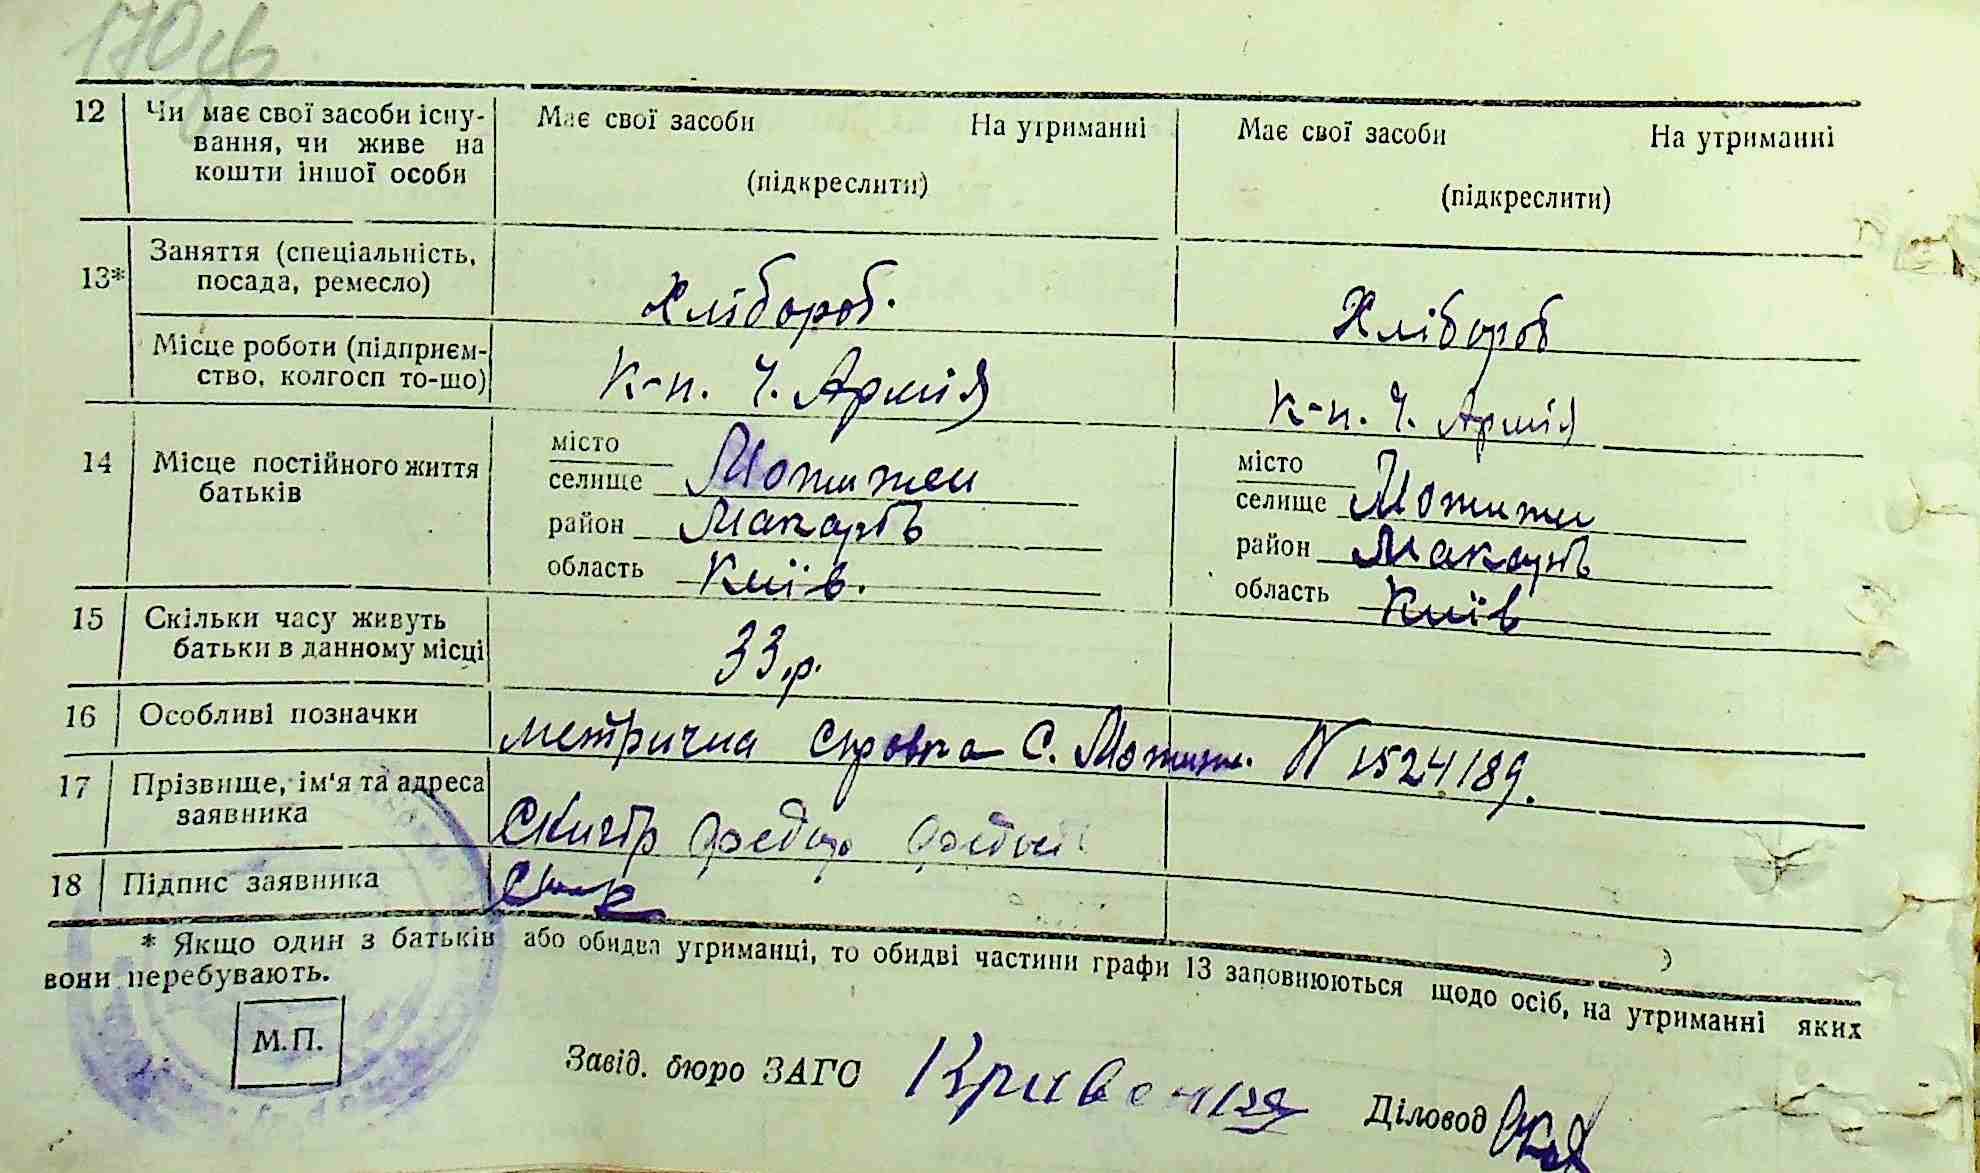 170 зв
12 Чи має свої засоби існу- Має свої засоби На утриманні Має свої засоби На утриманні
вання, чи живе на
кошти іншої особи (підкреслити) (підкреслити)
13* Заняття (спеціальність,
посада, ремесло) Хлібороб. Хлібороб
Місце роботи (підприєм-
ство, колгосп то-що) К-п. Ч. Армія К-п. Ч. Армія
14 Місце постійного життя
батьків
місто місто
селище Мотижен селище Мотижи
район Макарів район Макарів
область Київ. область Київ
15 Скільки часу живуть
батьки в данному місці 33 р.
16 Особливі позначки метрична справка С. Мотиж. N 1524/89.
17 Прізвище, ім'я та адреса
заявника Скигір Федір
18 Підпис заявника
* Якщо один з батьків або обидва утриманці, то обидві частини графи 13 заповнюються щодо осіб, на утриманні яких
вони перебувають.
М.П.
Завід. бюро ЗАГС Діловод